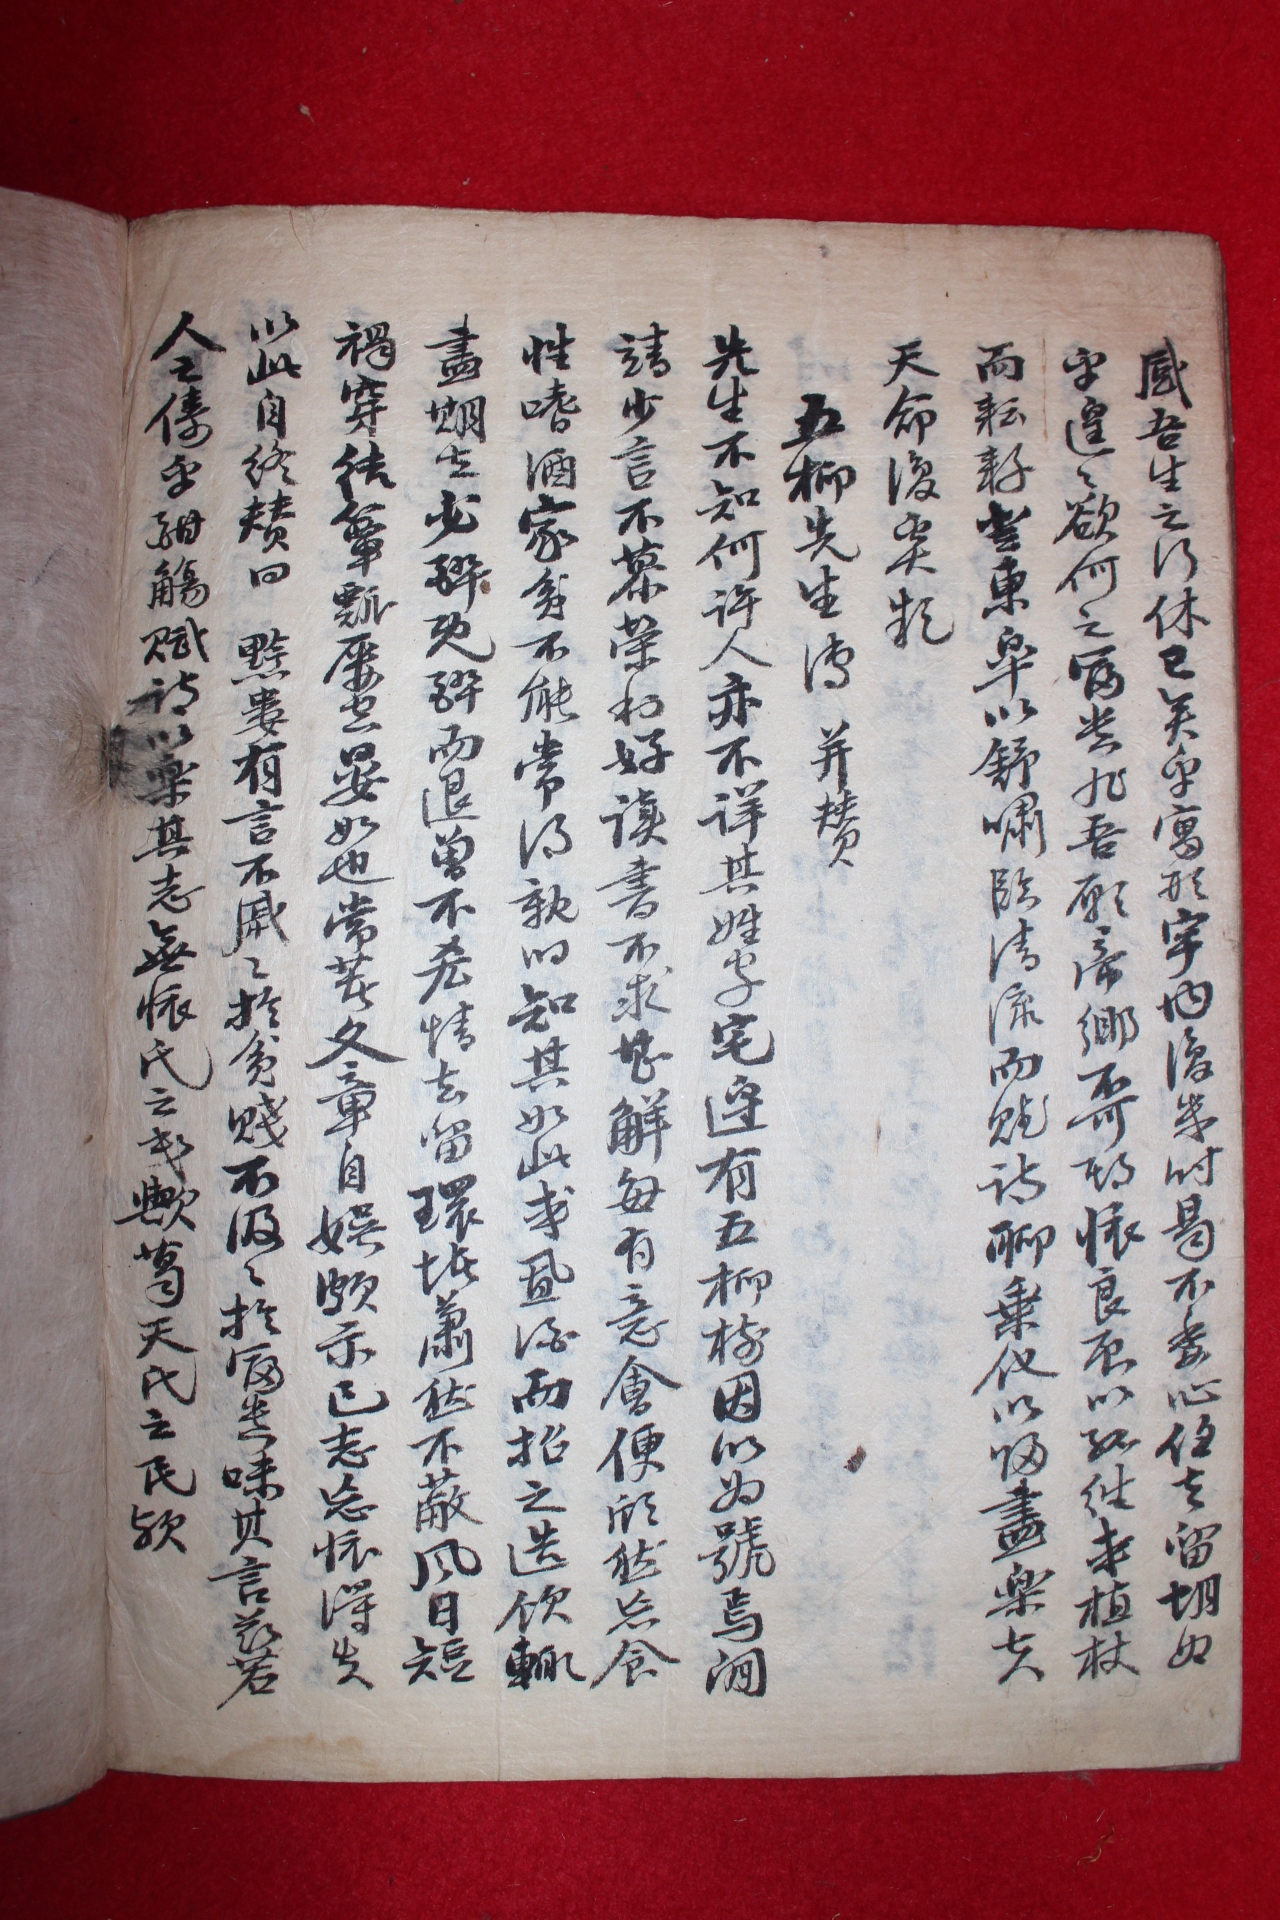 感吾生之行休已矣乎寓形宇內復幾時曷不委心任去留胡如
乎遑〻欲何之富貴非吾願帝鄕不可期懷良辰以孤往或植杖
而耘耔登東皐以舒嘯臨淸流而賦詩聊乘化以歸盡樂夫
天命復奚疑
五柳先生傳 并賛
先生不知何許人亦不詳其姓字宅邊有五柳樹因以爲號焉閒
靖少言不慕榮利好讀書不求甚解每有意會便欣然忘食
性嗜酒家貧不能常得親旧知其如此或置酒而招之造飮輒
盡期在必醉旣醉而退曾不吝情去留環堵蕭然不蔽風日短
褐穿結簞瓢屢空晏如也常著文章自娛頗示己志忘懷得失
以此自終賛曰 黔婁有言不戚〻於貧賤不汲〻於富貴味其言玆若
人之儔乎酣觴賦詩以樂其志無懷氏之民歟葛天氏之民歟